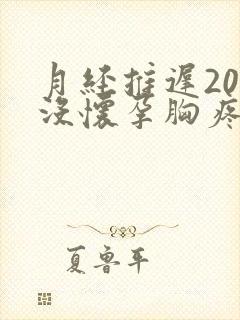 月经推遲20
没懷孕胸疼
夏鲁平